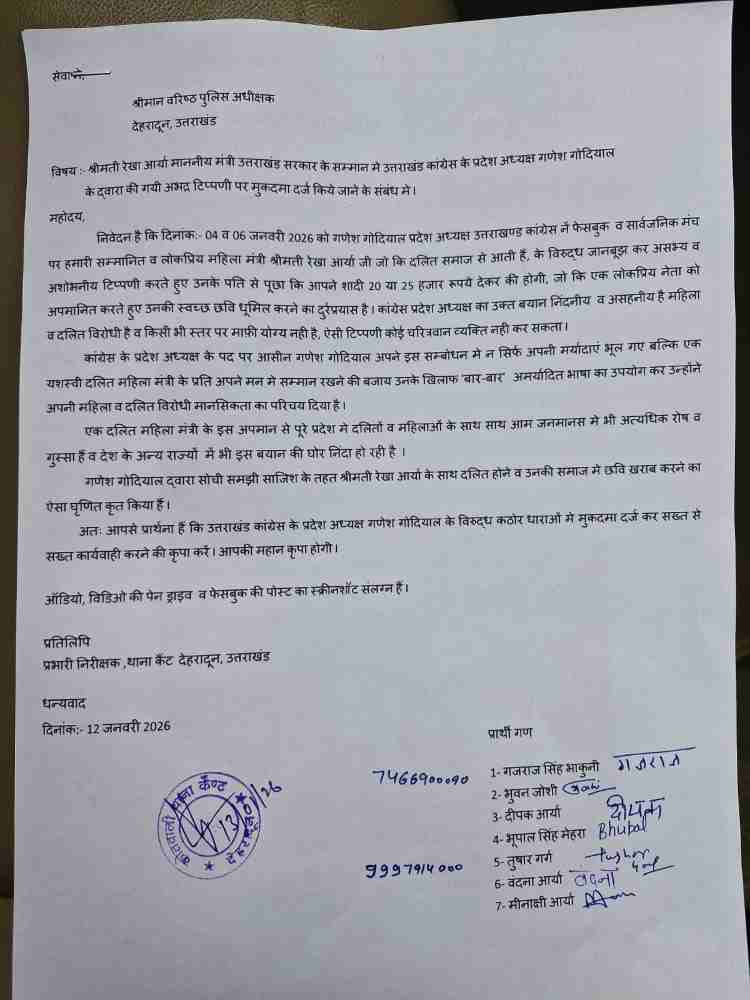 सेवामें,
श्रीमान वरिष्ठ पुलिस अधीक्षक
देहरादून, उत्तराखंड
विषय :- श्रीमती रेखा आर्या माननीय मंत्री उत्तराखंड सरकार के सम्मान मे उत्तराखंड कांग्रेस के प्रदेश अध्यक्ष गणेश गोदियाल
के द्वारा की गयी अभद्र टिप्पणी पर मुकदमा दर्ज किये जाने के संबंध मे ।
महोदय,
निवेदन है कि दिनांक:- 04 व 06 जनवरी 2026 को गणेश गोदियाल प्रदेश अध्यक्ष उत्तराखण्ड कांग्रेस नें फेसबुक व सार्वजनिक मंच
पर हमारी सम्मानित व लोकप्रिय महिला मंत्री श्रीमती रेखा आर्या जी जो कि दलित समाज से आती हैं, के विरुद्ध जानबूझ कर असभ्य व
अशोभनीय टिप्पणी करते हुए उनके पति से पूछा कि आपने शादी 20 या 25 हजार रूपये देकर की होगी, जो कि एक लोकप्रिय नेता को
अपमानित करते हुए उनकी स्वच्छ छवि धूमिल करने का दुर्रप्रयास है । कांग्रेस प्रदेश अध्यक्ष का उक्त बयान निंदनीय व असहनीय है महिला
व दलित विरोधी है व किसी भी स्तर पर माफ़ी योग्य नही है, ऐसी टिप्पणी कोई चरित्रवान व्यक्ति नही कर सकता ।
कांग्रेस के प्रदेश अध्यक्ष के पद पर आसीन गणेश गोदियाल अपने इस सम्बोधन मे न सिर्फ अपनी मर्यादाएं भूल गए बल्कि एक
यशस्वी दलित महिला मंत्री के प्रति अपने मन मे सम्मान रखने की बजाय उनके खिलाफ 'बार-बार' अमर्यादित भाषा का उपयोग कर उन्होंने
अपनी महिला व दलित विरोधी मानसिकता का परिचय दिया है ।
एक दलित महिला मंत्री के इस अपमान से पूरे प्रदेश मे दलितों व महिलाओं के साथ साथ आम जनमानस मे भी अत्यधिक रोष व
गुस्सा हैं व देश के अन्य राज्यों में भी इस बयान की घोर निंदा हो रही है ।
गणेश गोदियाल द्वारा सोची समझी साजिश के तहत श्रीमती रेखा आर्या के साथ दलित होने व उनकी समाज मे छवि खराब करने का
ऐसा घृणित कृत किया हैं ।
अतः आपसे प्रार्थना हैं कि उत्तराखंड कांग्रेस के प्रदेश अध्यक्ष गणेश गोदियाल के विरुद्ध कठोर धाराओं मे मुकदमा दर्ज कर सख्त से
सख्त कार्यवाही करने की कृपा करें । आपकी महान कृपा होगी ।
ऑडियो, विडिओ की पेन ड्राइव व फेसबुक की पोस्ट का स्क्रीनशॉट संलग्न हैं ।
प्रतिलिपि
प्रभारी निरीक्षक ,थाना कैंट देहरादून, उत्तराखंड
धन्यवाद
दिनांक:- 12 जनवरी 2026
प्रार्थी गण
7466900090
1- गजराज सिंह भाकुनी गजराज
2- भुवन जोशी
3- दीपक आर्या दीपक
4- भूपाल सिंह मेहरा Bhupal
9997914000
5- तुषार गर्ग Tushar
6- वंदना आर्या वंदना
7- मीनाक्षी आर्या
कोतवाली थाना कैण्ट
देहरादून